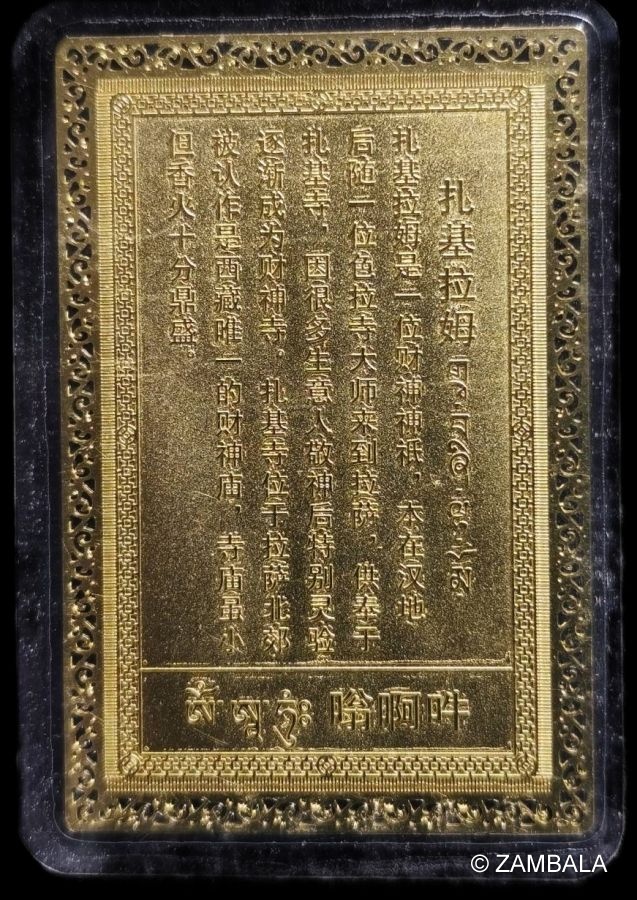 扎基拉姆
扎基拉姆是一位财神神祇，本在汉地
后随一位色拉寺大师来到拉萨，供奉于
扎基寺，因很多生意人敬神后特别灵验
逐渐成为财神寺，扎基寺位于拉萨北郊
被认作是西藏唯一的财神庙，寺庙虽小
但香火十分鼎盛。
嗡啊吽
© ZAMBALA